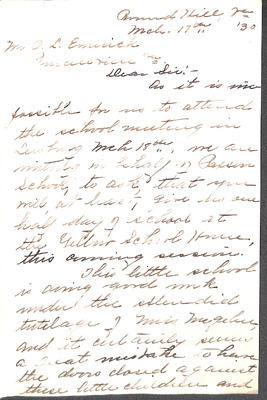 Round Hill, Va
Mch. 17th, '30
Mr. O. L. Emerick
Dear Sir:-
As it is im
possible for us to attend
the school meeting in
Leesburg Mch 18th, we are
writing in behalf of
School, to ask, that you
will at least, give us one
half day of school at
the School House,
this coming session.
This little school
is doing good work
under the splendid
tutelage of Miss
and it certainly seems
a great mistake to have
the doors closed against
these little children and